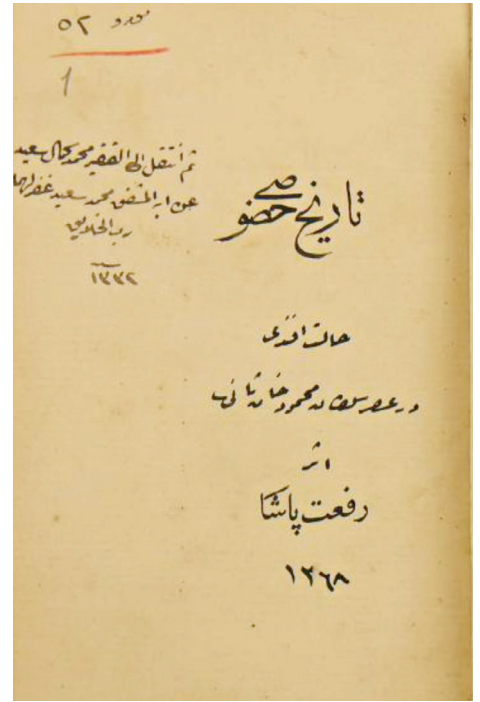 نمرو ٥٢
1
ثم انتقل الى الفقير محمد كمال سعيد
عن ابيه المشفق محمد سعيد غفر لهما
رب الخلايق
١٣٣٢
تاريخ خصوصي
حالت افندى
در عصر سلطان محمود خان ثانى
اثر
رفعت پاشا
١٣٦٨